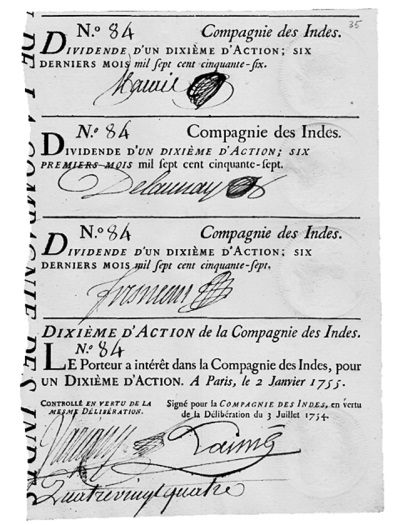 35
N.º 84 Compagnie des Indes.
DIVIDENDE D'UN DIXIÈME D'ACTION; SIX
DERNIERS MOIS mil sept cent cinquante-six.
N.º 84 Compagnie des Indes.
DIVIDENDE D'UN DIXIÈME D'ACTION; SIX
PREMIERS MOIS mil sept cent cinquante-sept.
Delaunay
N.º 84 Compagnie des Indes.
DIVIDENDE D'UN DIXIÈME D'ACTION; SIX
DERNIERS MOIS mil sept cent cinquante-sept.
DIXIÈME D'ACTION de la Compagnie des Indes.
N.º 84
LE Porteur a intérêt dans la Compagnie des Indes, pour
UN DIXIÈME D'ACTION. A Paris, le 2 Janvier 1755.
CONTROLLÉ EN VERTU DE LA
MESME DÉLIBÉRATION.
Signé pour la COMPAGNIE DES INDES, en vertu
de la Délibération du 3 Juillet 1754.
Quatrevingt quatre